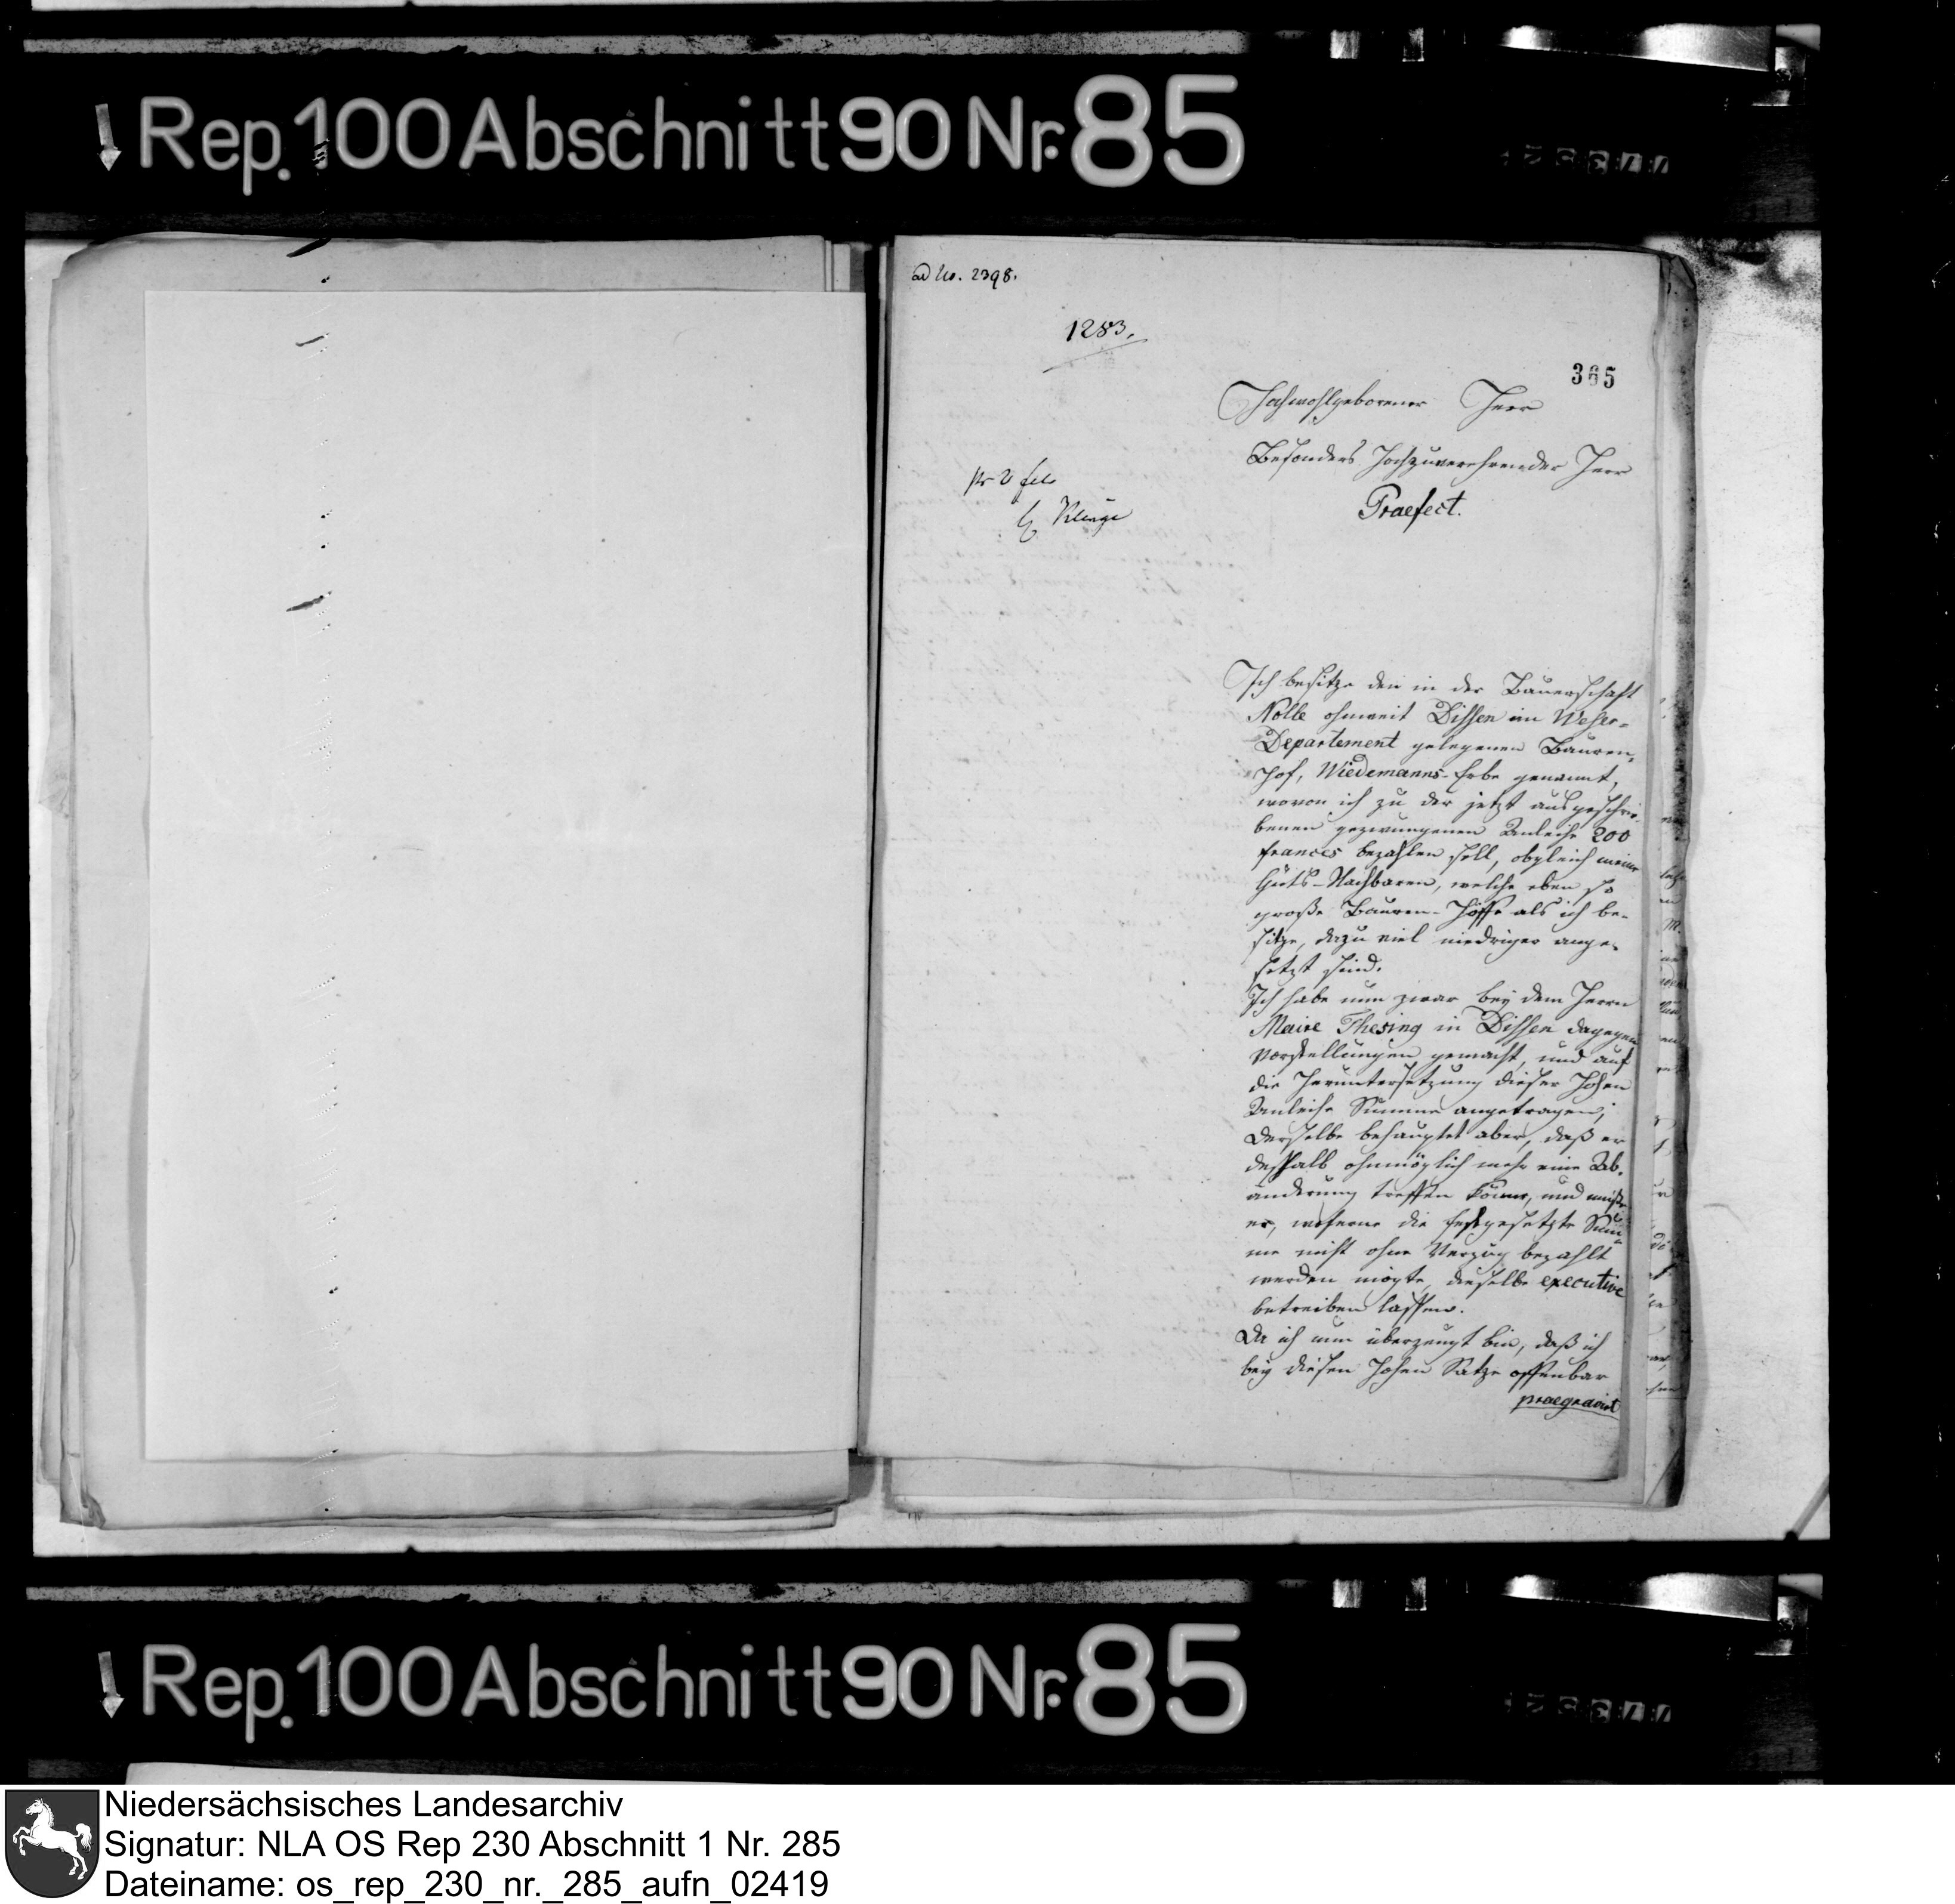 Rep. 100 Abschnitt 90 Nr. 85
ad No. 2398.
1283.
365
Hochwohlgeborener Herr
Besonders Hochzuverehrender Herr
Praefect.
Klinge
Ich besitze den in der Bauerschaft
Nolle ohnweit Dissen im Weser-
Departement gelegenen Bauren-
Hof, Wiedemanns-Erbe genannt,
wovon ich zu der jetzt ausgeschrie-
benen gezwungenen Anleihe 200
francs bezahlen soll, obgleich meine
Guts-Nachbaren, welche eben so
große Bauren-Höffe als ich be-
sitze, dazu viel niedriger ange-
setzt sind.
Ich habe nun zwar bey dem Herrn
Maire Thesing in Dissen dagegen
Vorstellungen gemacht, und auf
die Heruntersetzung dieser hohen
Anleihe Summe angetragen;
derselbe behauptet aber, daß er
deshalb ohnmöglich mehr eine Ab-
änderung treffen könne, und müßte
er, woferne die festgesetzte Sum-
me nicht ohne Verzug bezahlt
werden mögte, dieselbe executive
betreiben lassen.
Da ich nun überzeugt bin, daß ich
bey diesen hohen Satze offenbar
praegravirt
Rep. 100 Abschnitt 90 Nr. 85
Niedersächsisches Landesarchiv
Signatur: NLA OS Rep 230 Abschnitt 1 Nr. 285
Dateiname: os_rep_230_nr._285_aufn_02419